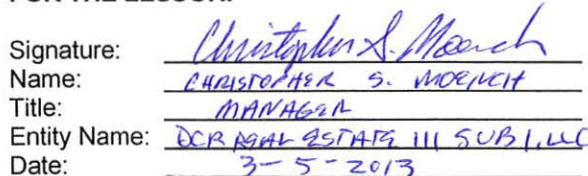 FOR THE LESSOR:
Signature: Christopher S. Moench
Name: CHRISTOPHER S. MOENCH
Title: MANAGER
Entity Name: DCR REAL ESTATE III SUB I, LLC
Date: 3-5-2013